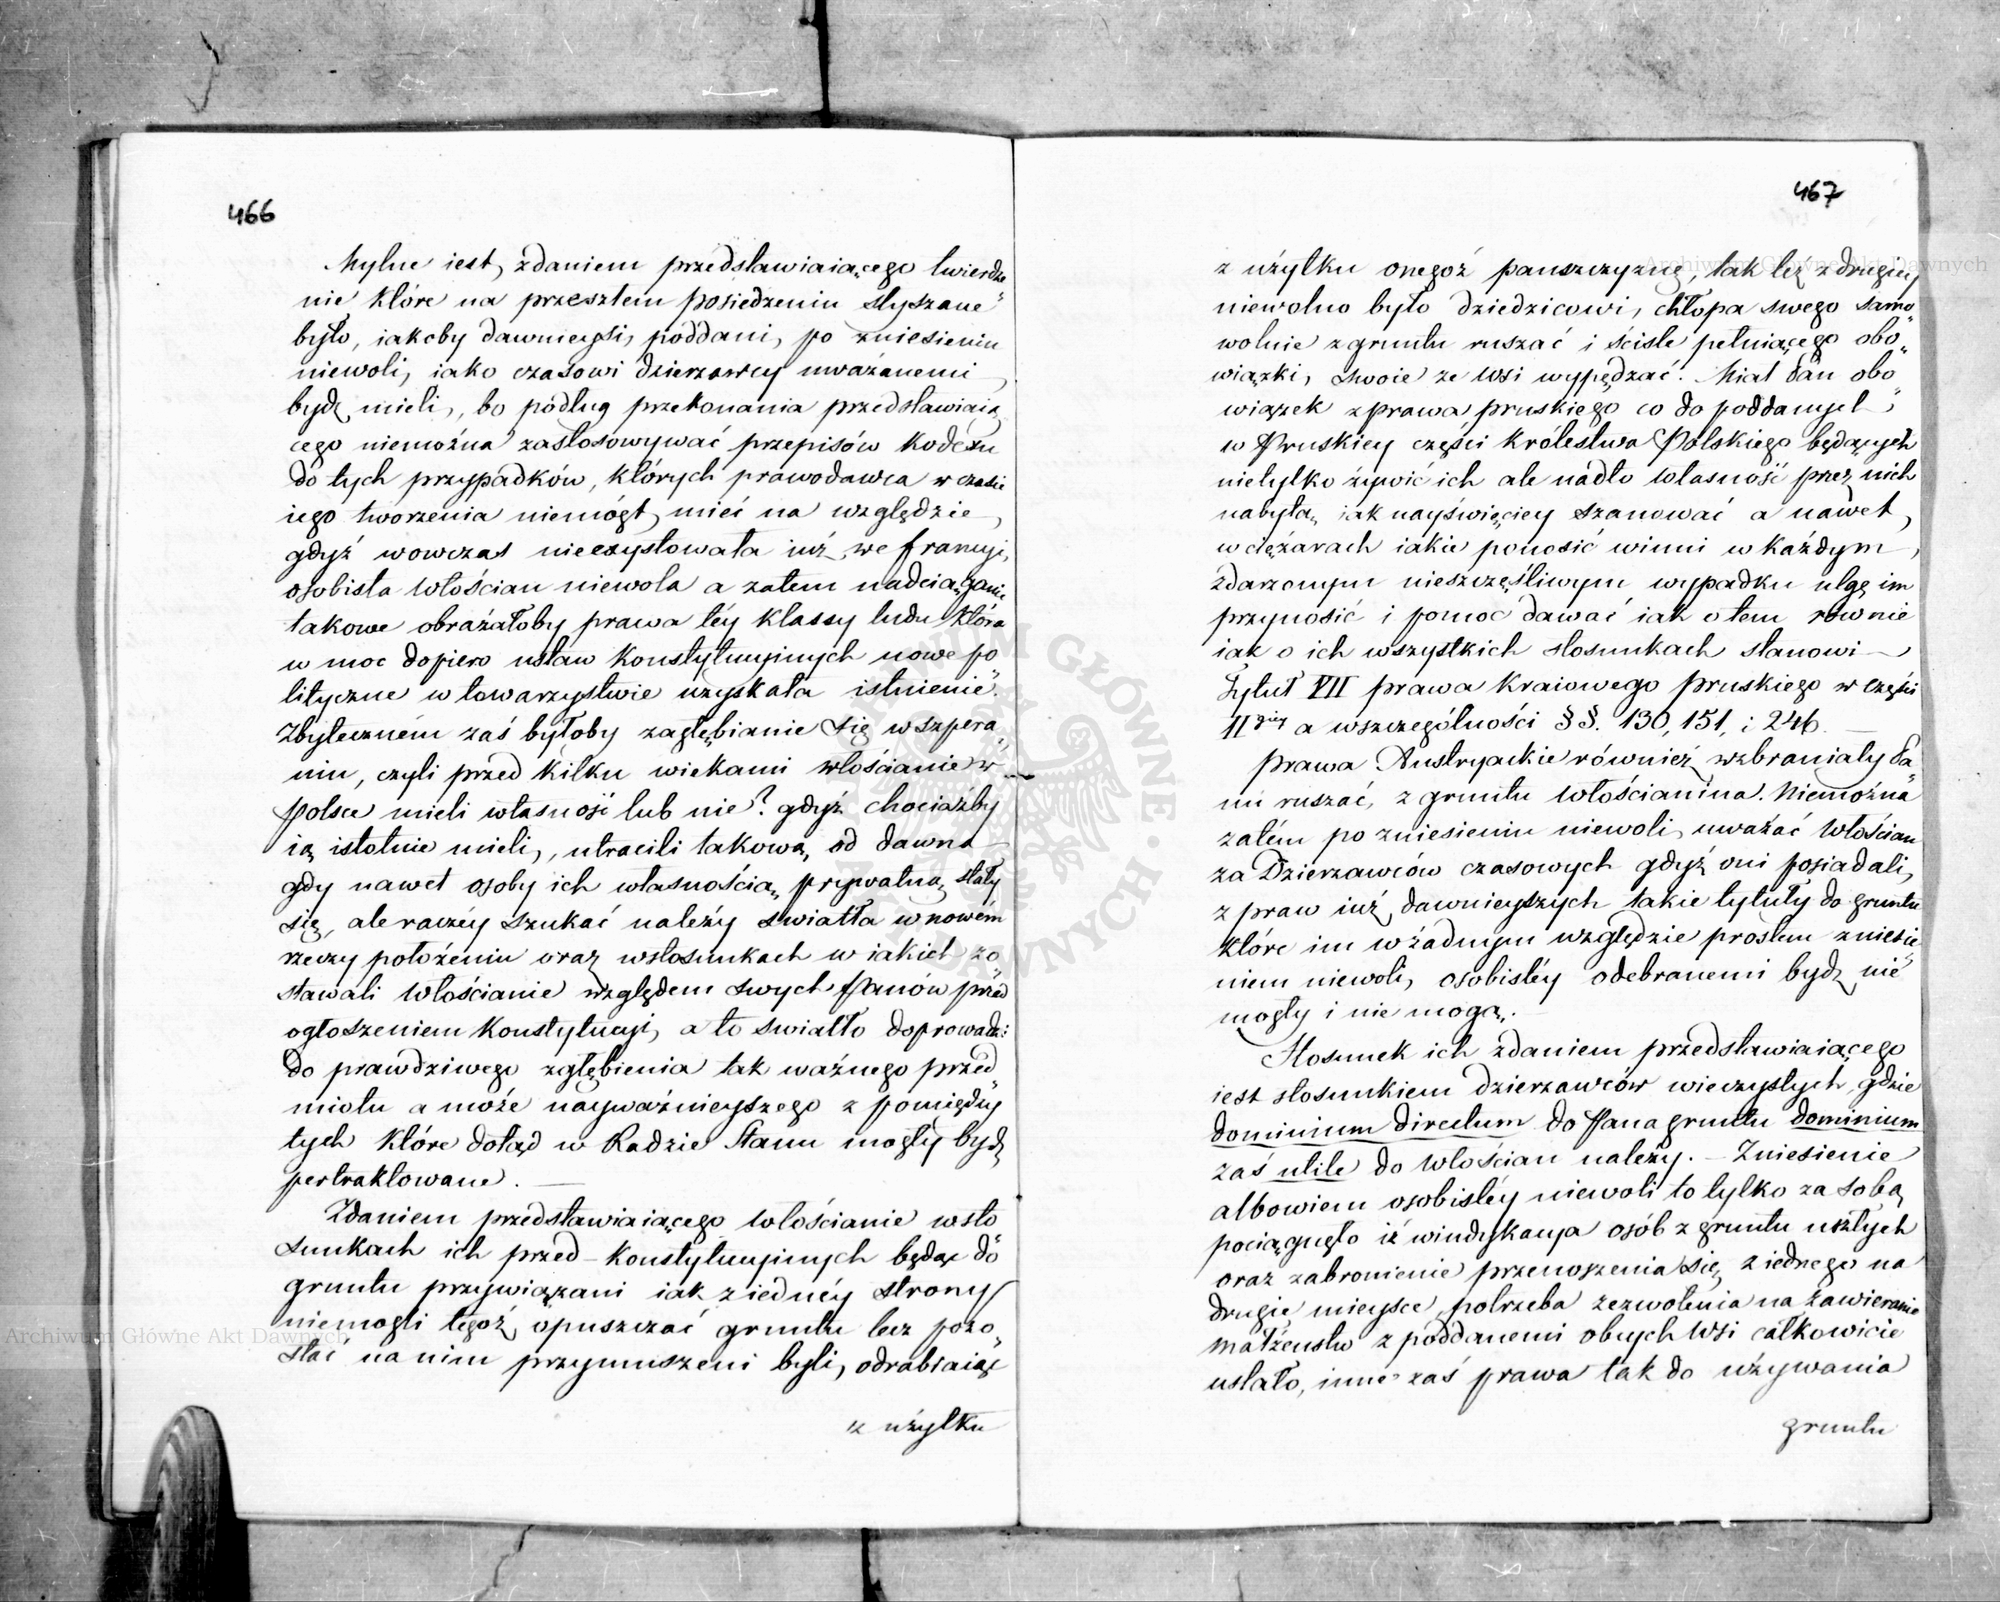 466
Mylne iest, zdaniem przedstawiaiącego twierdze
nie które na przeszłem posiedzeniu słyszane
było, iakoby dawnieysi, poddani, po zniesieniu
niewoli, iako czasowi dzierzawcy uważanemi
bydź mieli, bo podług przekonania przedstawiaią
cego niemożna zastosowywać przepisów kodexu
do tych przypadków, których prawodawca w czasie
iego tworzenia niemógł, mieć na względzie,
gdyż wowczas nieexystowała iuż, we francyi,
osobista Włościan niewola a zatem nadciąganie
takowe obrażałoby prawa téy klassy ludu która
w moc dopiero ustaw konstytucyinych nowe po
lityczne w towarzystwie uzyskała istnienie.
Zbytecznem zaś byłoby zagłębianie się w szpera„
niu, czyli przed kilku wiekami włościanie w
Polsce mieli własność lub nie? gdyż chociażby
ią istotnie mieli, utracili takową, od dawna
gdy nawet osoby ich własnością, prywatną stały
się, ale raczéy szukać należy swiatła w nowém
rzeczy położeniu oraz w stosunkach w iakich zo
stawali Włościanie względem swych Panów przed
ogłoszeniem konstytucyi, a to swiatło doprowadzi
do prawdziwego zgłębienia tak ważnego przed
miotu a może nayważnieyszego z pomiędzy
tych które dotąd w Radzie Stanu mogły bydź
pertraktowane. —
Zdaniem przedstawiaiącego Włościanie w sto
sunkach ich przed-konstytucyinych będąc do
gruntu przywiązani iak z iednéy strony
niemogli tegoż, opuszczać gruntu lecz pozo„
stać na nim przymuszeni byli, odrabiaiąc
z użytku
467
z użytku onegoż pańszczyznę, tak też z drugiey
niewolno było dziedzicowi, chłopa swego samo„
wolnie z gruntu ruszać i ściśle pełniącego obo„
wiązki, swoie ze wsi wypędzać. Miał Pan obo
wiązek z prawa pruskiego co do poddanych
w Pruskiey części Królestwa Polskiego będących
nietylko żywić ich ale nadto własność przez nich
nabytą, iak nayświęciey szanować a nawet,
w ciężarach iakie ponosić winni w każdym,
zdarzonym nieszczęśliwym wypadku ulgę im
przynosić i pomoc dawać iak o tem równie
iak o ich wszystkich stosunkach stanowi —
Tytuł VII prawa kraiowego pruskiego w części
IIgiey a wszczególności §§. 130, 151, i 246. —
Prawa Austryackie również wzbraniały Pa
nu ruszać, z gruntu włościanina. Niemożna
zatém po zniesieniu niewoli, uważać Włościan
za Dzierzawców czasowych gdyż oni posiadali,
z praw iuż, dawnieyszych takie tytuły do gruntu
które im w żadnym względzie prostem zniesie
niem niewoli, osobistéy odebranemi bydź nie
mogły i nie mogą. —
Stosunek ich zdaniem przedstawiaiącego
iest stosunkiem dzierzawców wieczystych, gdzie
dominium directum do Pana gruntu dominium
zaś utile do Włościan należy. — Zniesienie
albowiem osobistéy niewoli to tylko za sobą
pociągnęło iż windykacya osób z gruntu uszłych
oraz zabronienie przenoszenia się, z iednego na
drugie mieysce, potrzeba zezwolenia na zawieranie
małżeństw z poddanemi obcych wsi całkowicie
ustało, inne zaś prawa tak do używania
gruntu
Archiwum Główne Akt Dawnych
Archiwum Główne Akt Dawnych